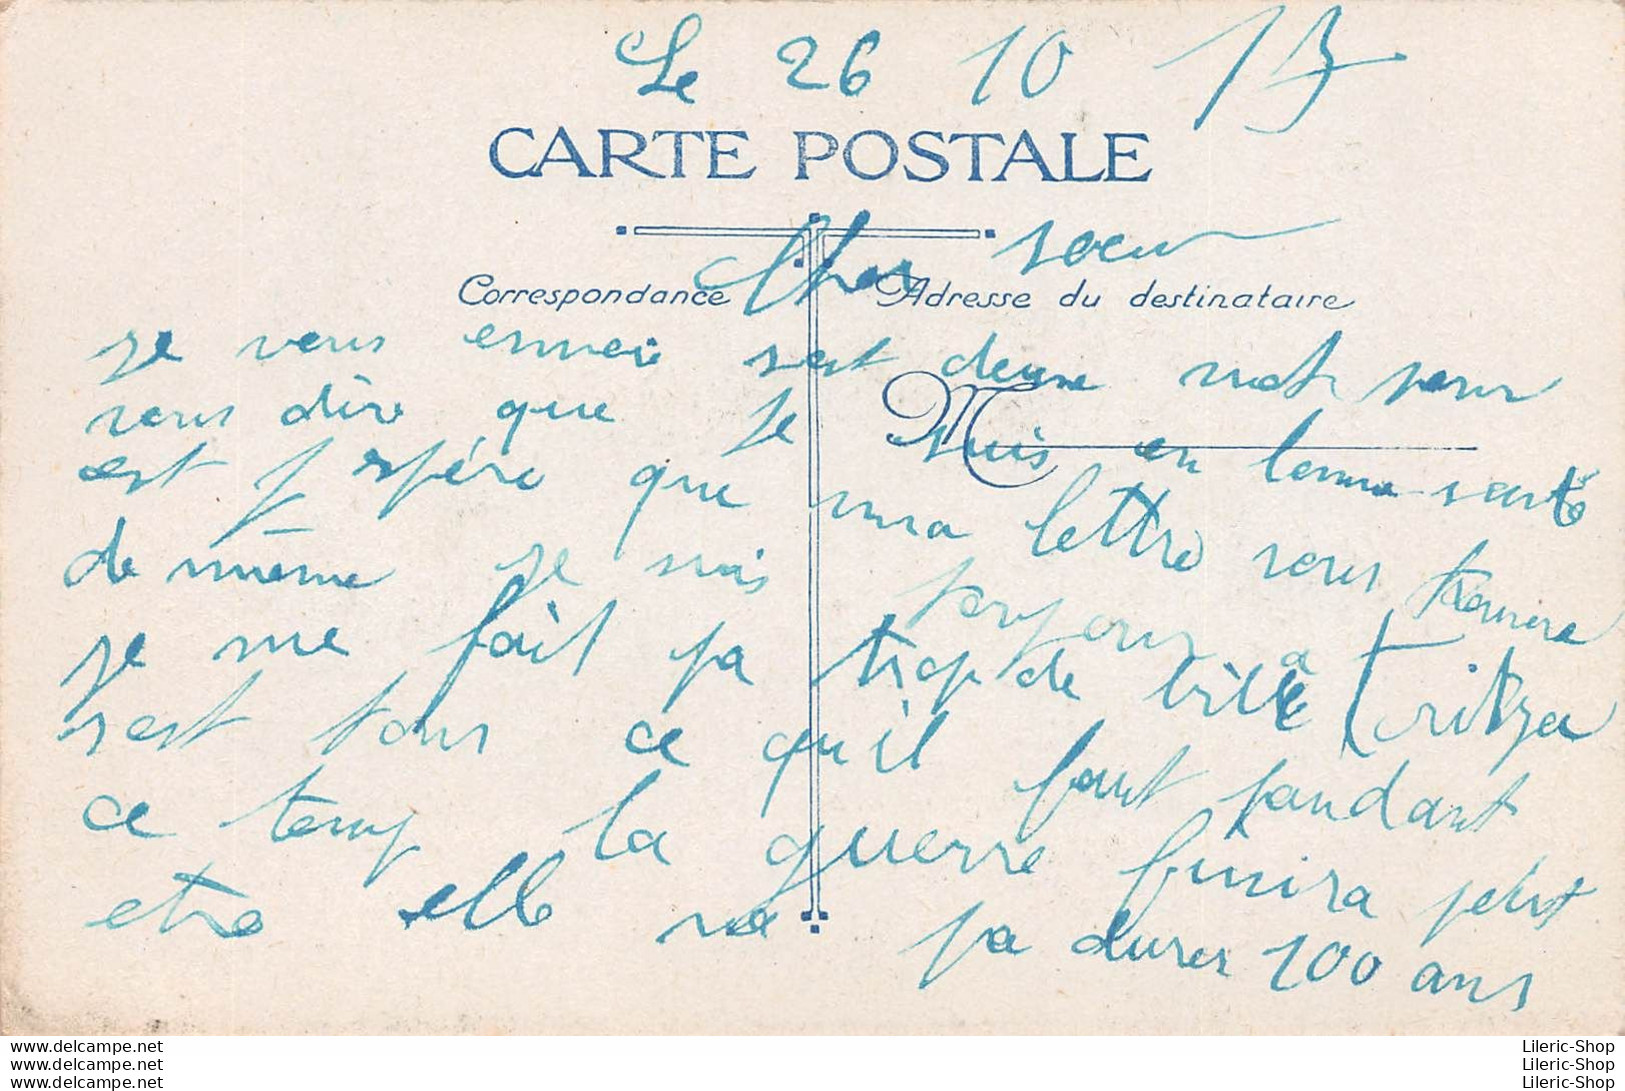 Le 26 10 15
CARTE POSTALE
Cher soeur
Correspondance Adresse du destinataire
je vous envoie sest deux mot pour
vous dire que je suis en bonne santé
est j espére que ma lettre vous trouvera
de même je suis toujours a
je me fait pa trop de bille
sest tous ce qu'il faut pandant
ce temp la guerre finira peut
etre elle va pa durer 100 ans
M
www.delcampe.net
www.delcampe.net
www.delcampe.net
Lileric-Shop
Lileric-Shop
Lileric-Shop